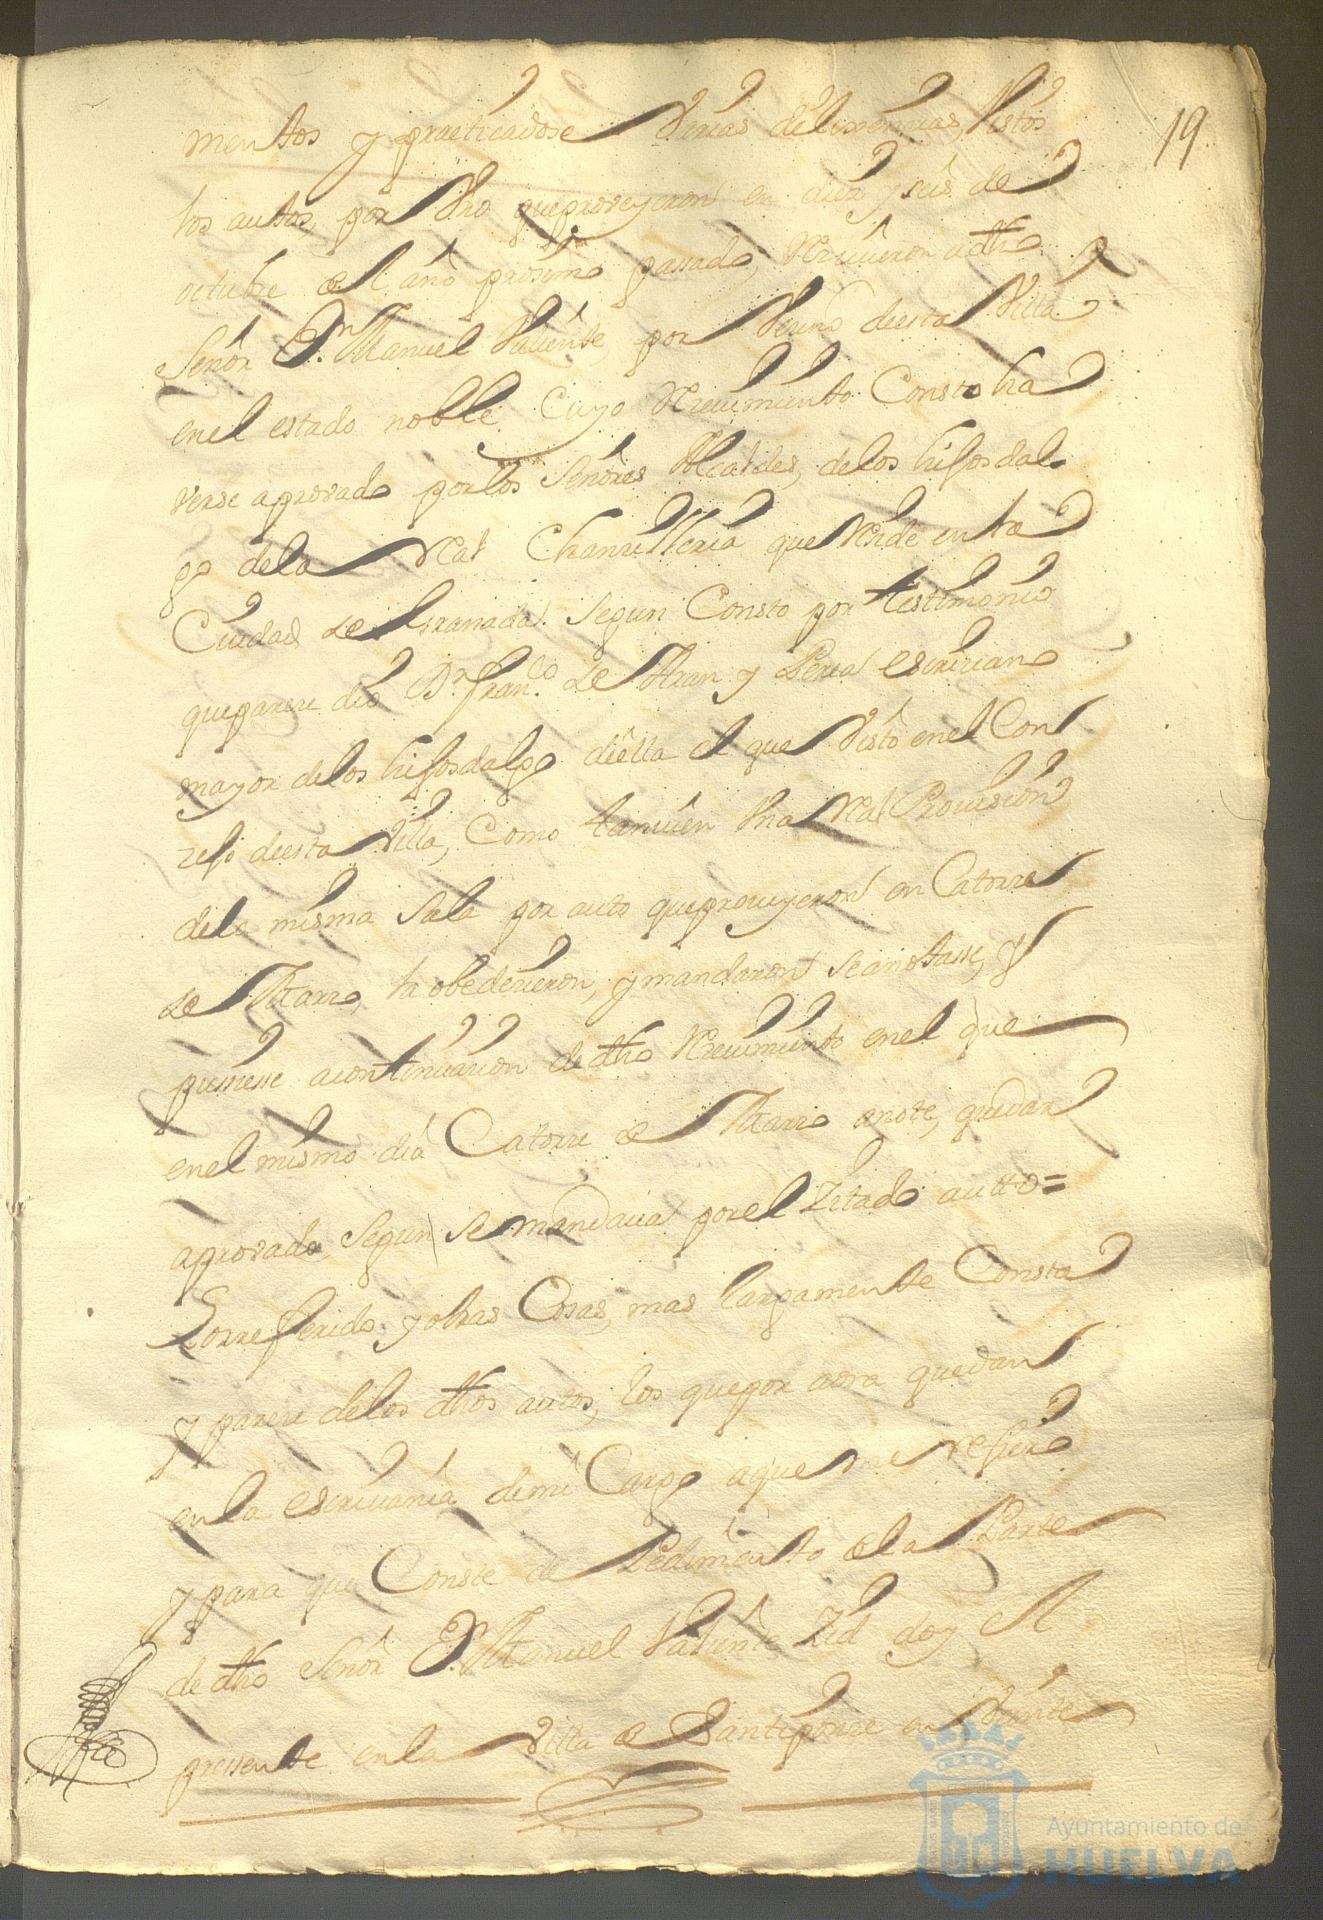 19
mentos y practicadose varias delixenzias, Vistos
los autos, por Vno que proveyeron en diez y seis de
octubre del año prosimo passado, Reciuieron a dho
Señor Dn Manuel Valiente, por Vecino de esta Villa
en el estado noble, Cuyo Reciuimiento Consto ha
verse aprovado por los Señores Alcaldes, de los hijosdal
go de la Real Chanzilleria que Reside en la
Ciudad de Granada. Segun Consto por testimonio
que parece dio Dn Franco de Aran y escriuano
mayor de los hijosdalgo de ella el que Visto en el Con
zejo de esta Villa, Como tamuien Vna Real Prouision
de la misma Sala por auto que proueyeron en Catorze
de Marzo, la obedecieron, y mandaron Se anotasse, y
pussiesse a continuazion de dho Reciuimiento en el que
en el mismo dia Catorze de Marzo anote, quedar
aprovado Segun Se mandaua por el Zitado autto=
Lo rreferido, y otras Cosas, mas largamente Consta
y parece de los dhos autos, los que por aora quedan
en la escriuania de mi Cargo a que me refiero
y para que Conste de Pedimento de la Parte
de dho Señor Dn Manuel Valiente doy el
pressente en la Villa de Santiponze en Veinte
Ayuntamiento de
HUELVA